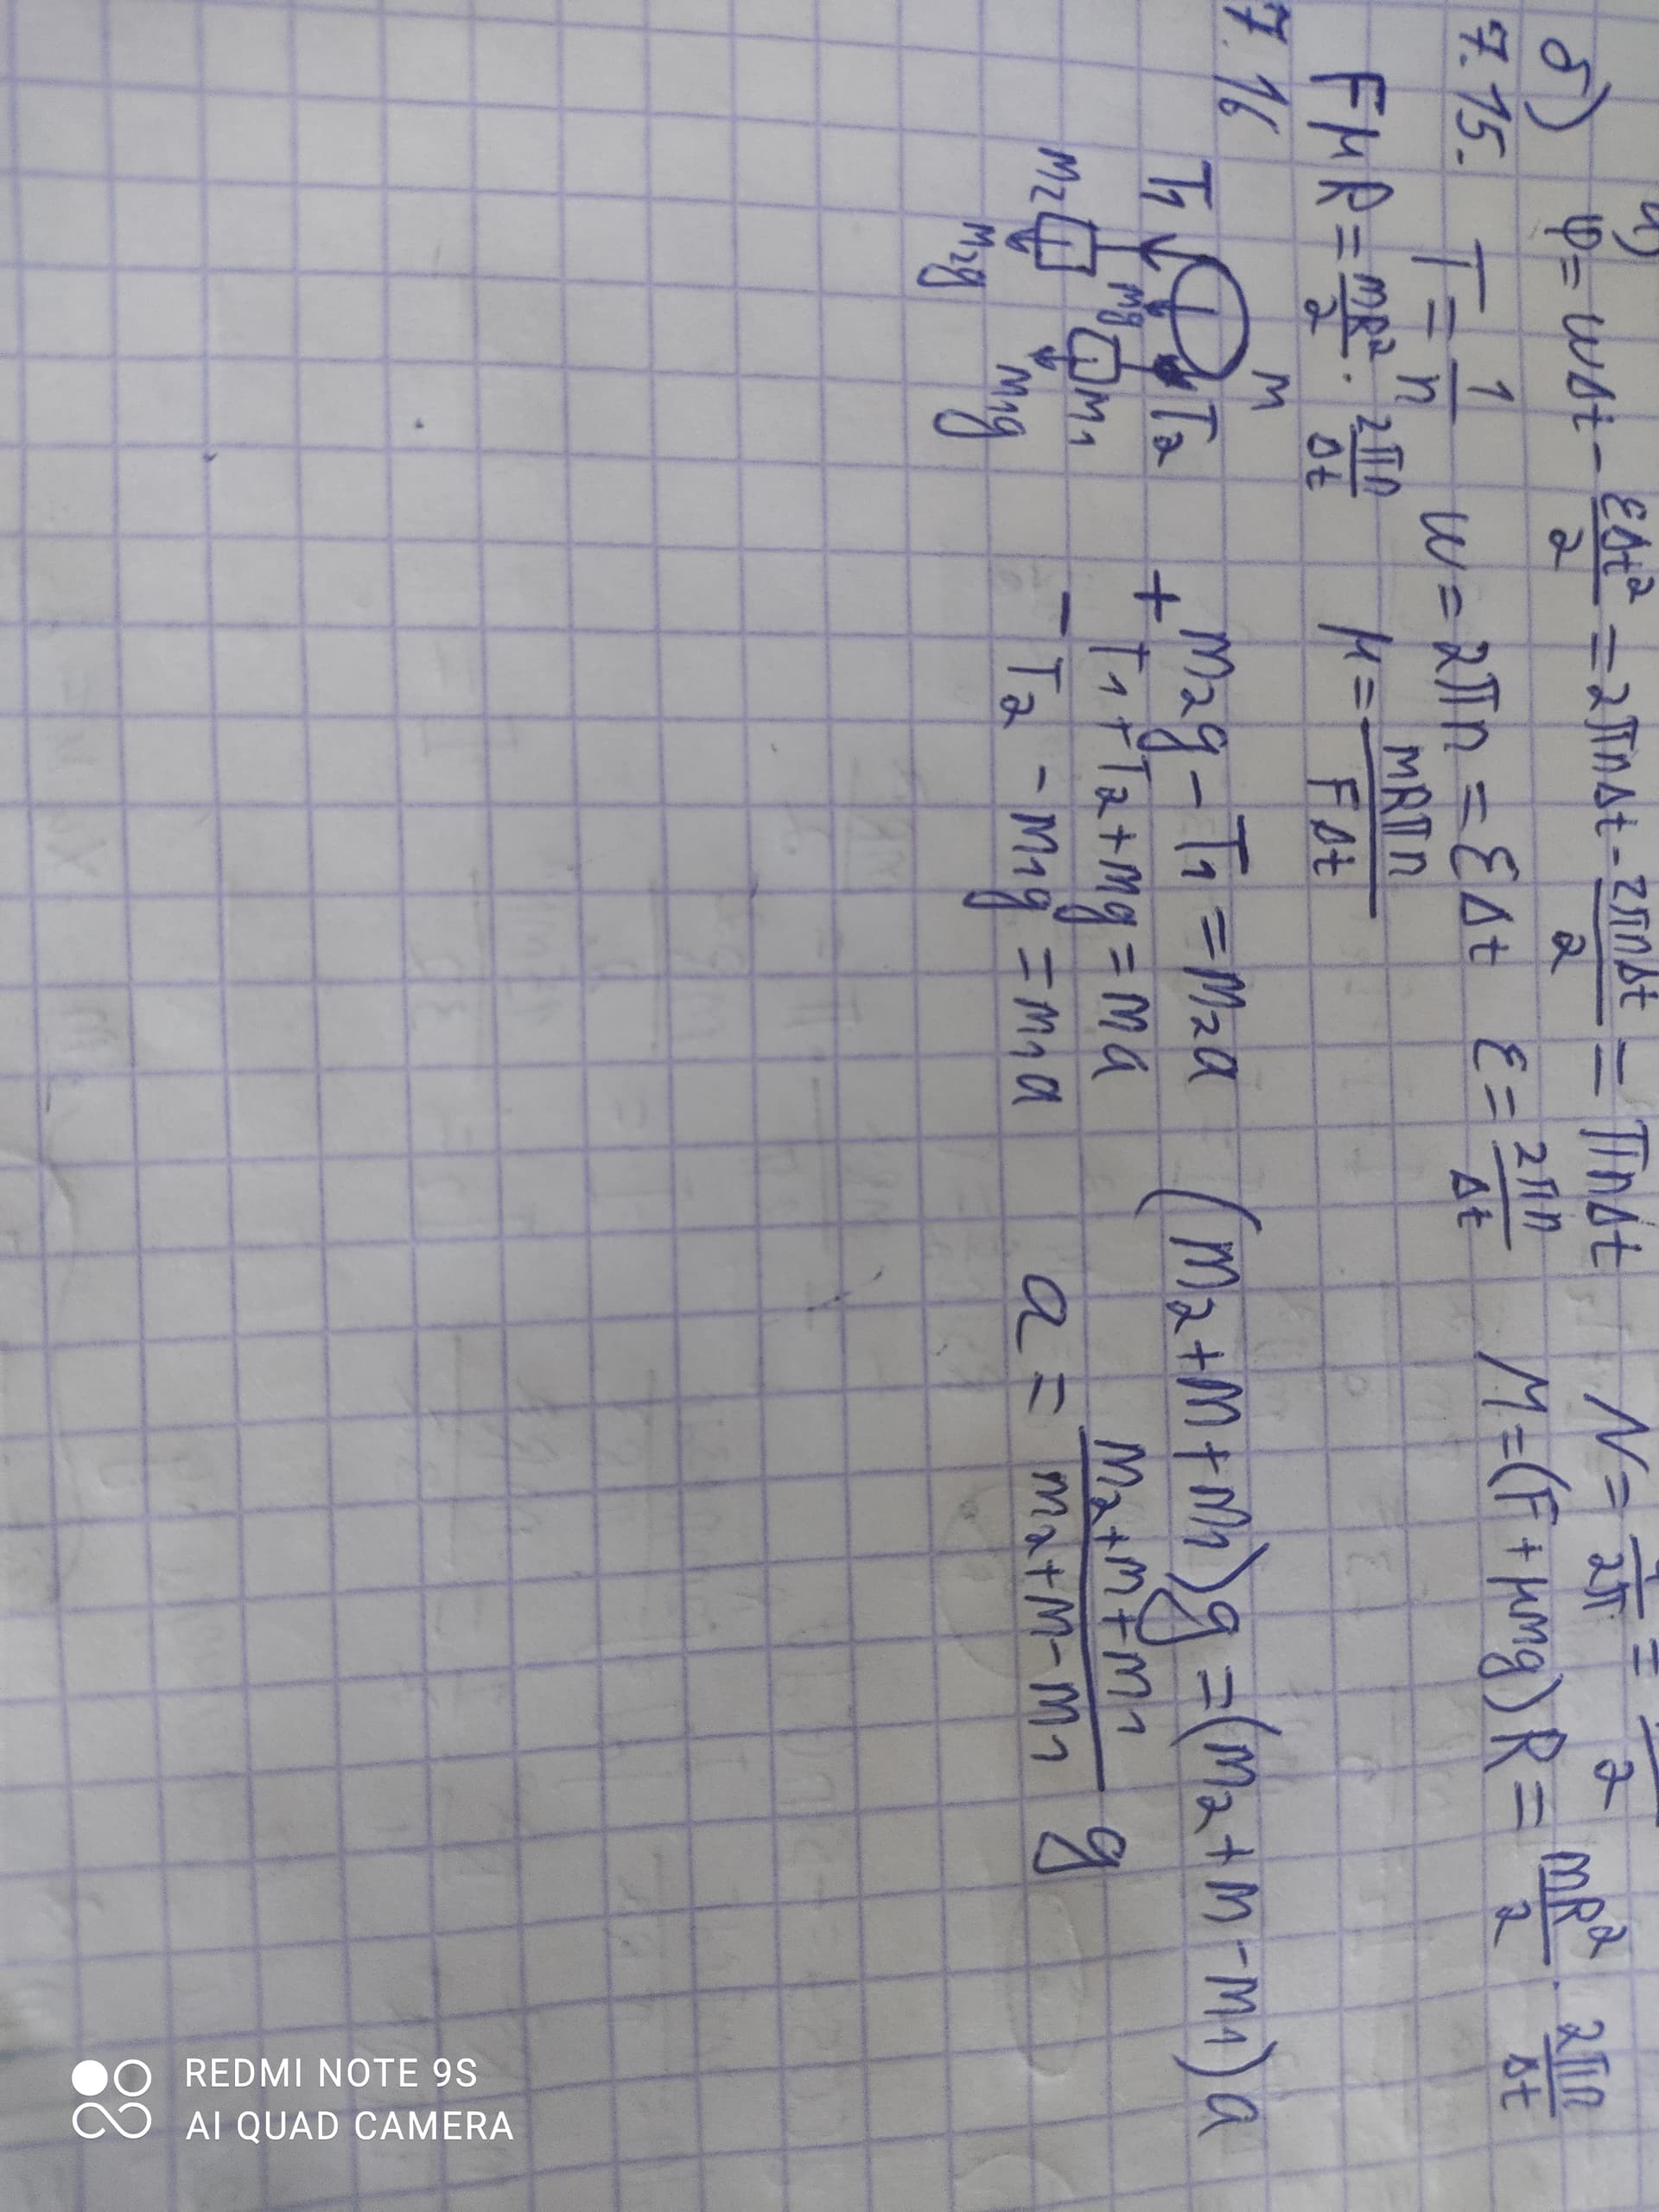 б) φ = ωΔt - εΔt²/2 = 2πnΔt - 2πnΔt/2 = πnΔt N = /2π = /2
7.15. T = 1/n ω = 2πn = εΔt ε = 2πn/Δt M = (F + μmg)R = mR²/2 · 2πn/Δt
FμR = mR²/2 · 2πn/Δt μ = mRπn/FΔt
7.16 m
T1 T2
mg
m2 m1
m2g m1g
+ m2g - T1 = m2a (m2 + m + m1)g = (m2 + m - m1)a
T1 + T2 + mg = ma
- T2 - m1g = m1a a = m2 + m + m1/m2 + m - m1 g
REDMI NOTE 9S
AI QUAD CAMERA